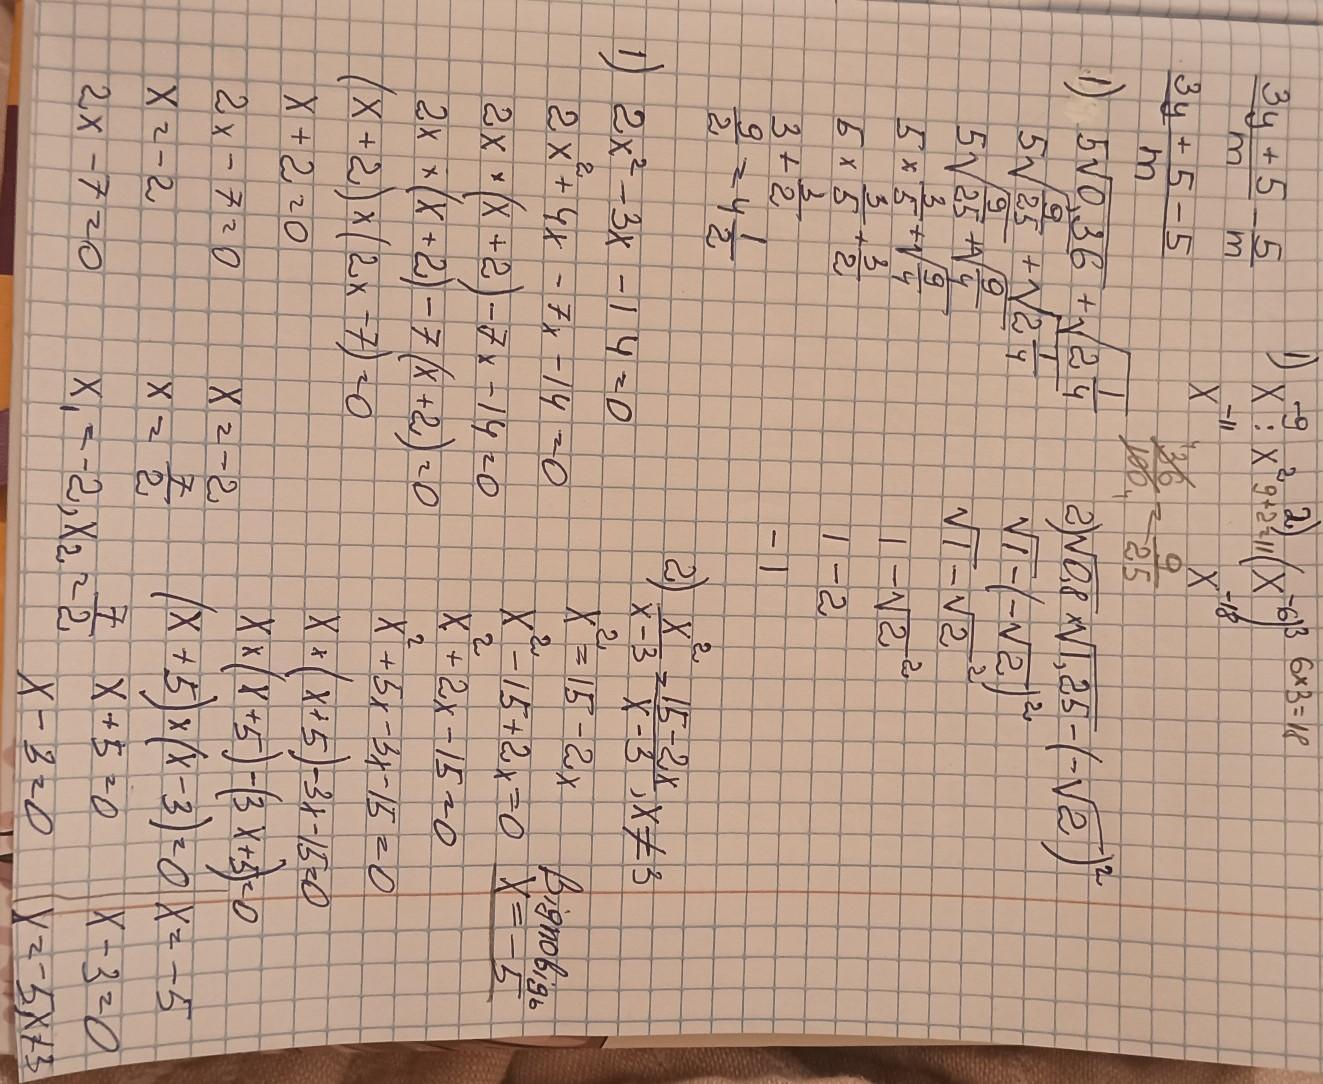 3y+5/m - 5/m
3y+5-5/m
1) x⁻⁹ : x²  9+2=11
x⁻¹¹
2) (x⁻⁶)³  6×3=18
x⁻¹⁸
1) 5√0,36 + √2 1/4
36/100 = 9/25
5√9/25 + √2 1/4
5√9/25 + √9/4
5 × 3/5 + √9/4
5 × 3/5 + 3/2
3 + 3/2
9/2 = 4 1/2
2) √0,8 × √1,25 - (-√2)²
√1 - (-√2)²
√1 - √2²
1 - √2²
1 - 2
-1
1) 2x² - 3x - 14 = 0
2x² + 4x - 7x - 14 = 0
2x × (x+2) - 7x - 14 = 0
2x × (x+2) - 7(x+2) = 0
(x+2) × (2x-7) = 0
x + 2 = 0
2x - 7 = 0  x = -2
x = -2  x = 7/2
2x - 7 = 0  x₁ = -2, x₂ = 7/2
2) x²/x-3 = 15-2x/x-3, x ≠ 3
x² = 15 - 2x
x² - 15 + 2x = 0
x² + 2x - 15 = 0
x² + 5x - 3x - 15 = 0
x × (x+5) - 3x - 15 = 0
x × (x+5) - (3x+5) = 0
(x+5) × (x-3) = 0  x = -5
x + 5 = 0  x - 3 = 0
x - 3 = 0  x = -5, x ≠ 3
Відповідь
x = -5